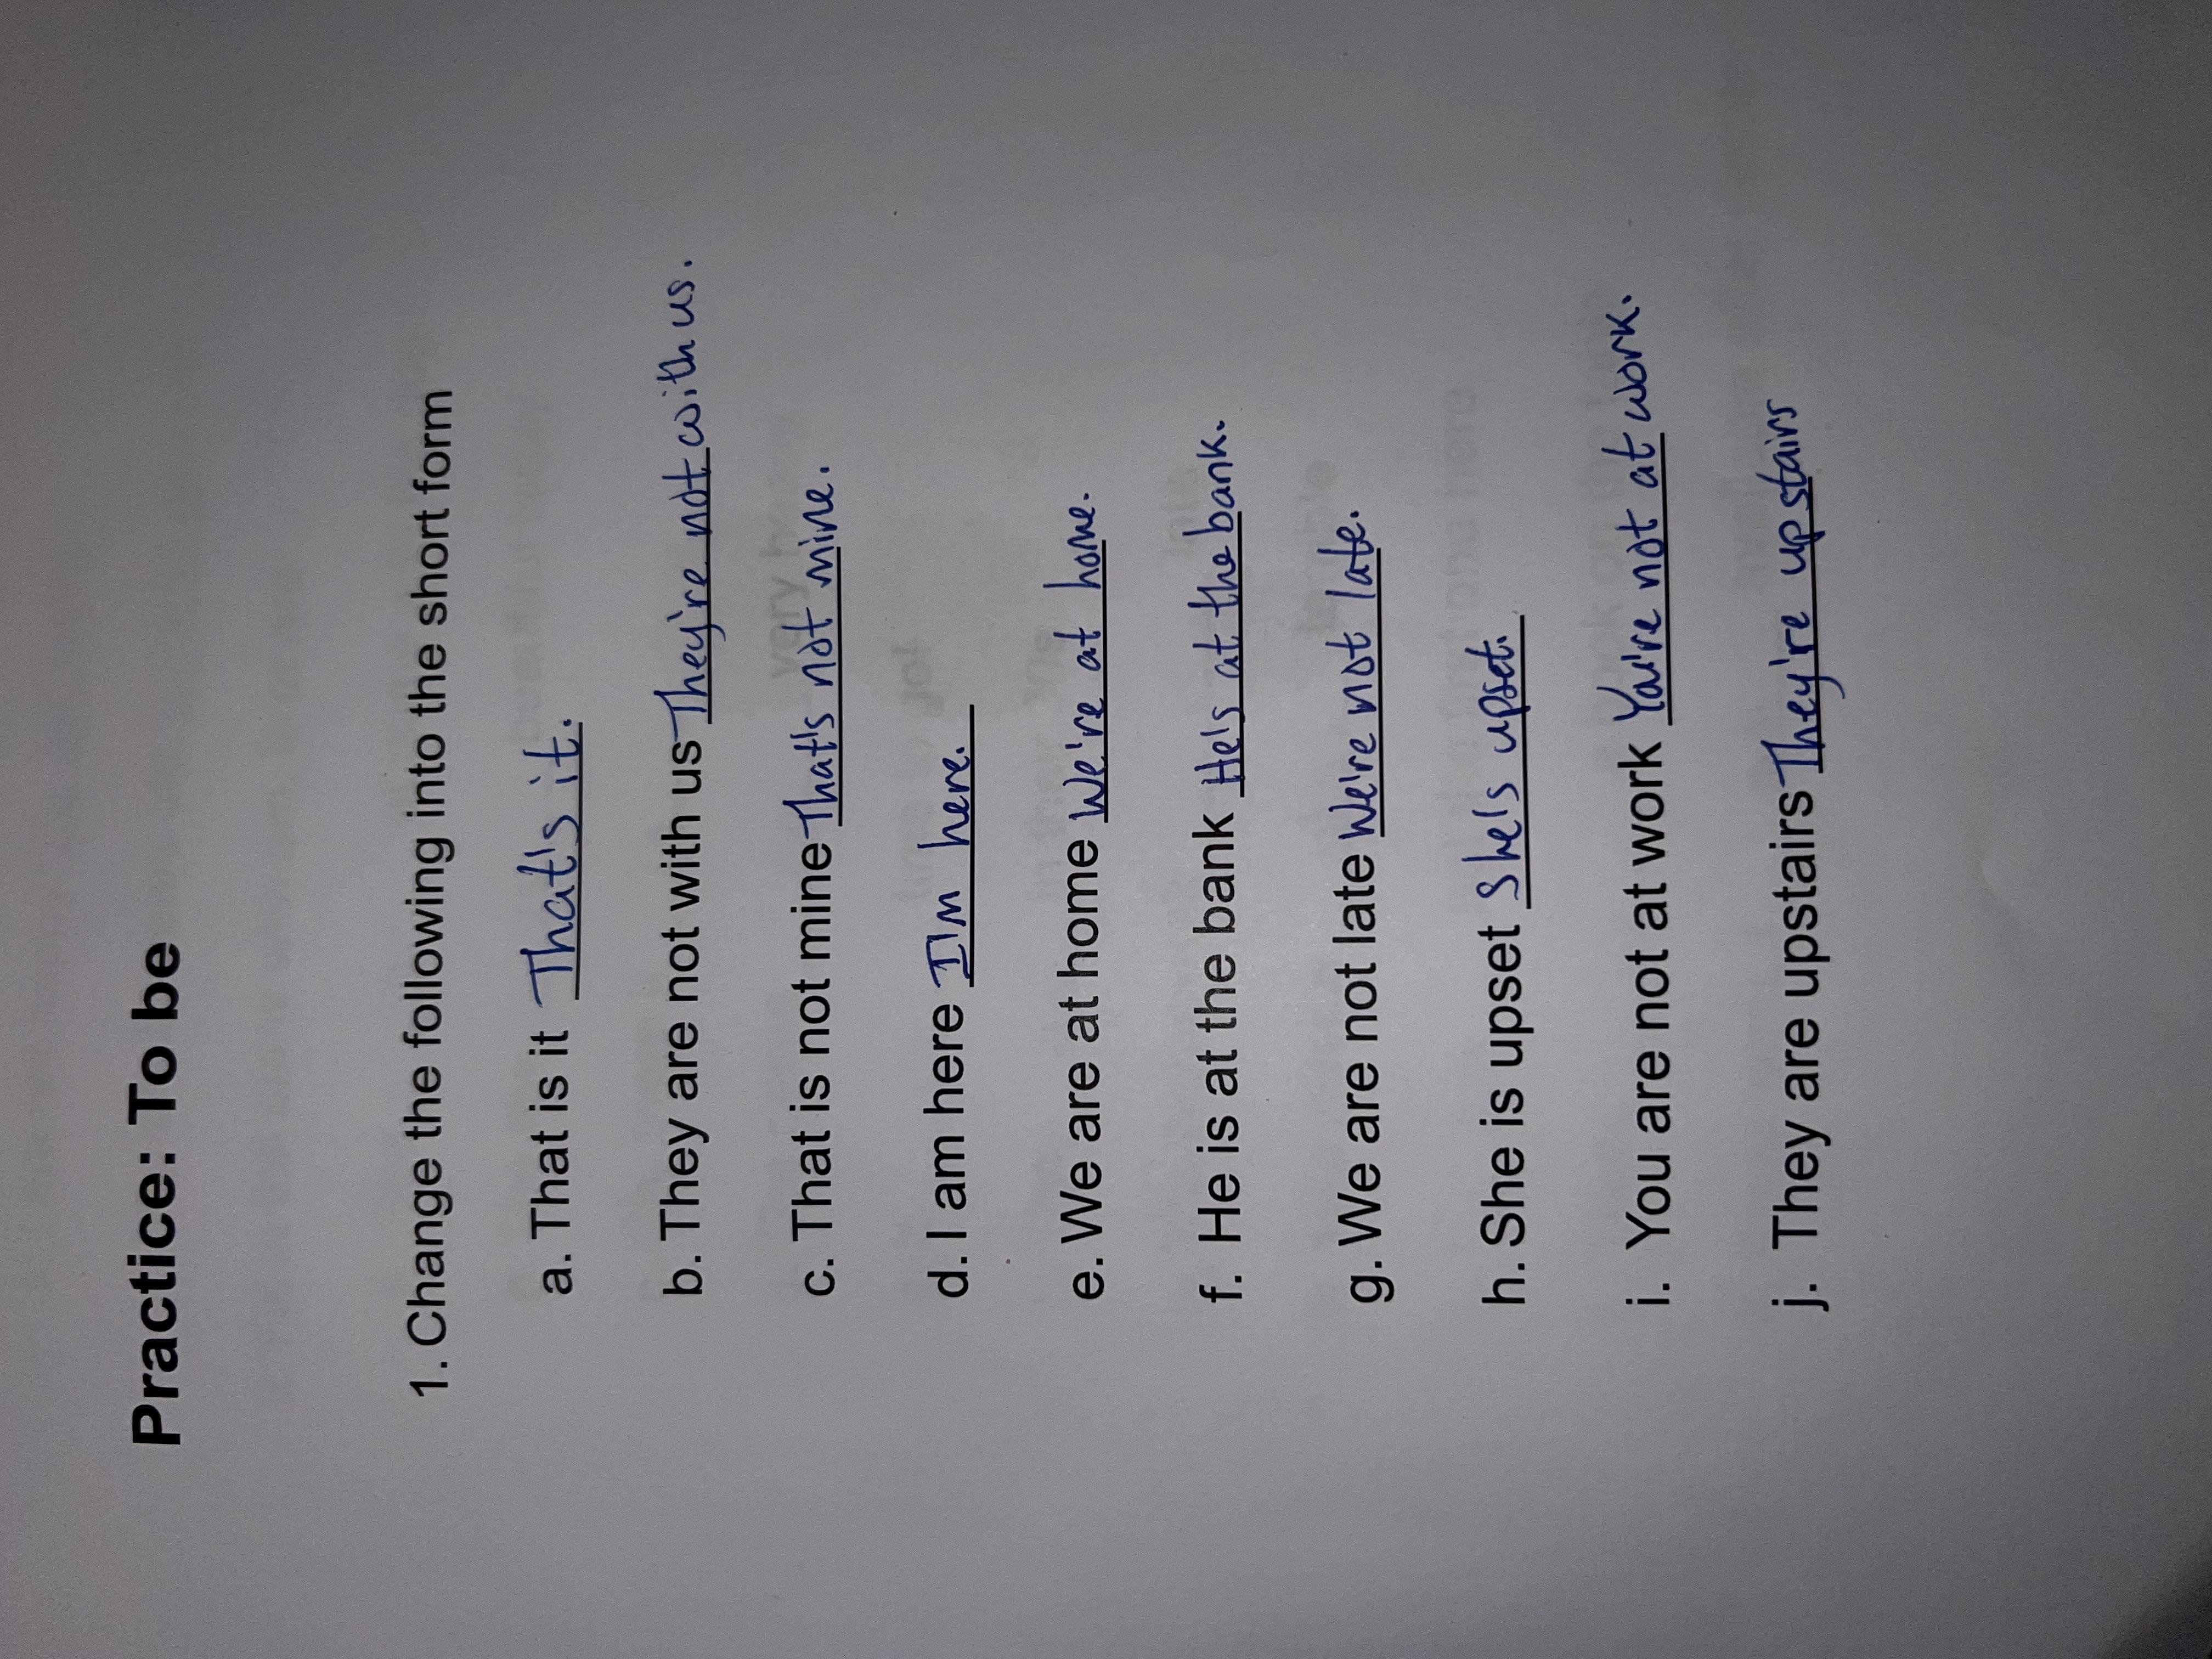 Practice: To be
1. Change the following into the short form
a. That is it That's it.
b. They are not with us They're not with us.
c. That is not mine That's not mine.
d. I am here I'm here.
e. We are at home We're at home.
f. He is at the bank He's at the bank.
g. We are not late We're not late.
h. She is upset She's upset.
i. You are not at work You're not at work.
j. They are upstairs They're upstairs